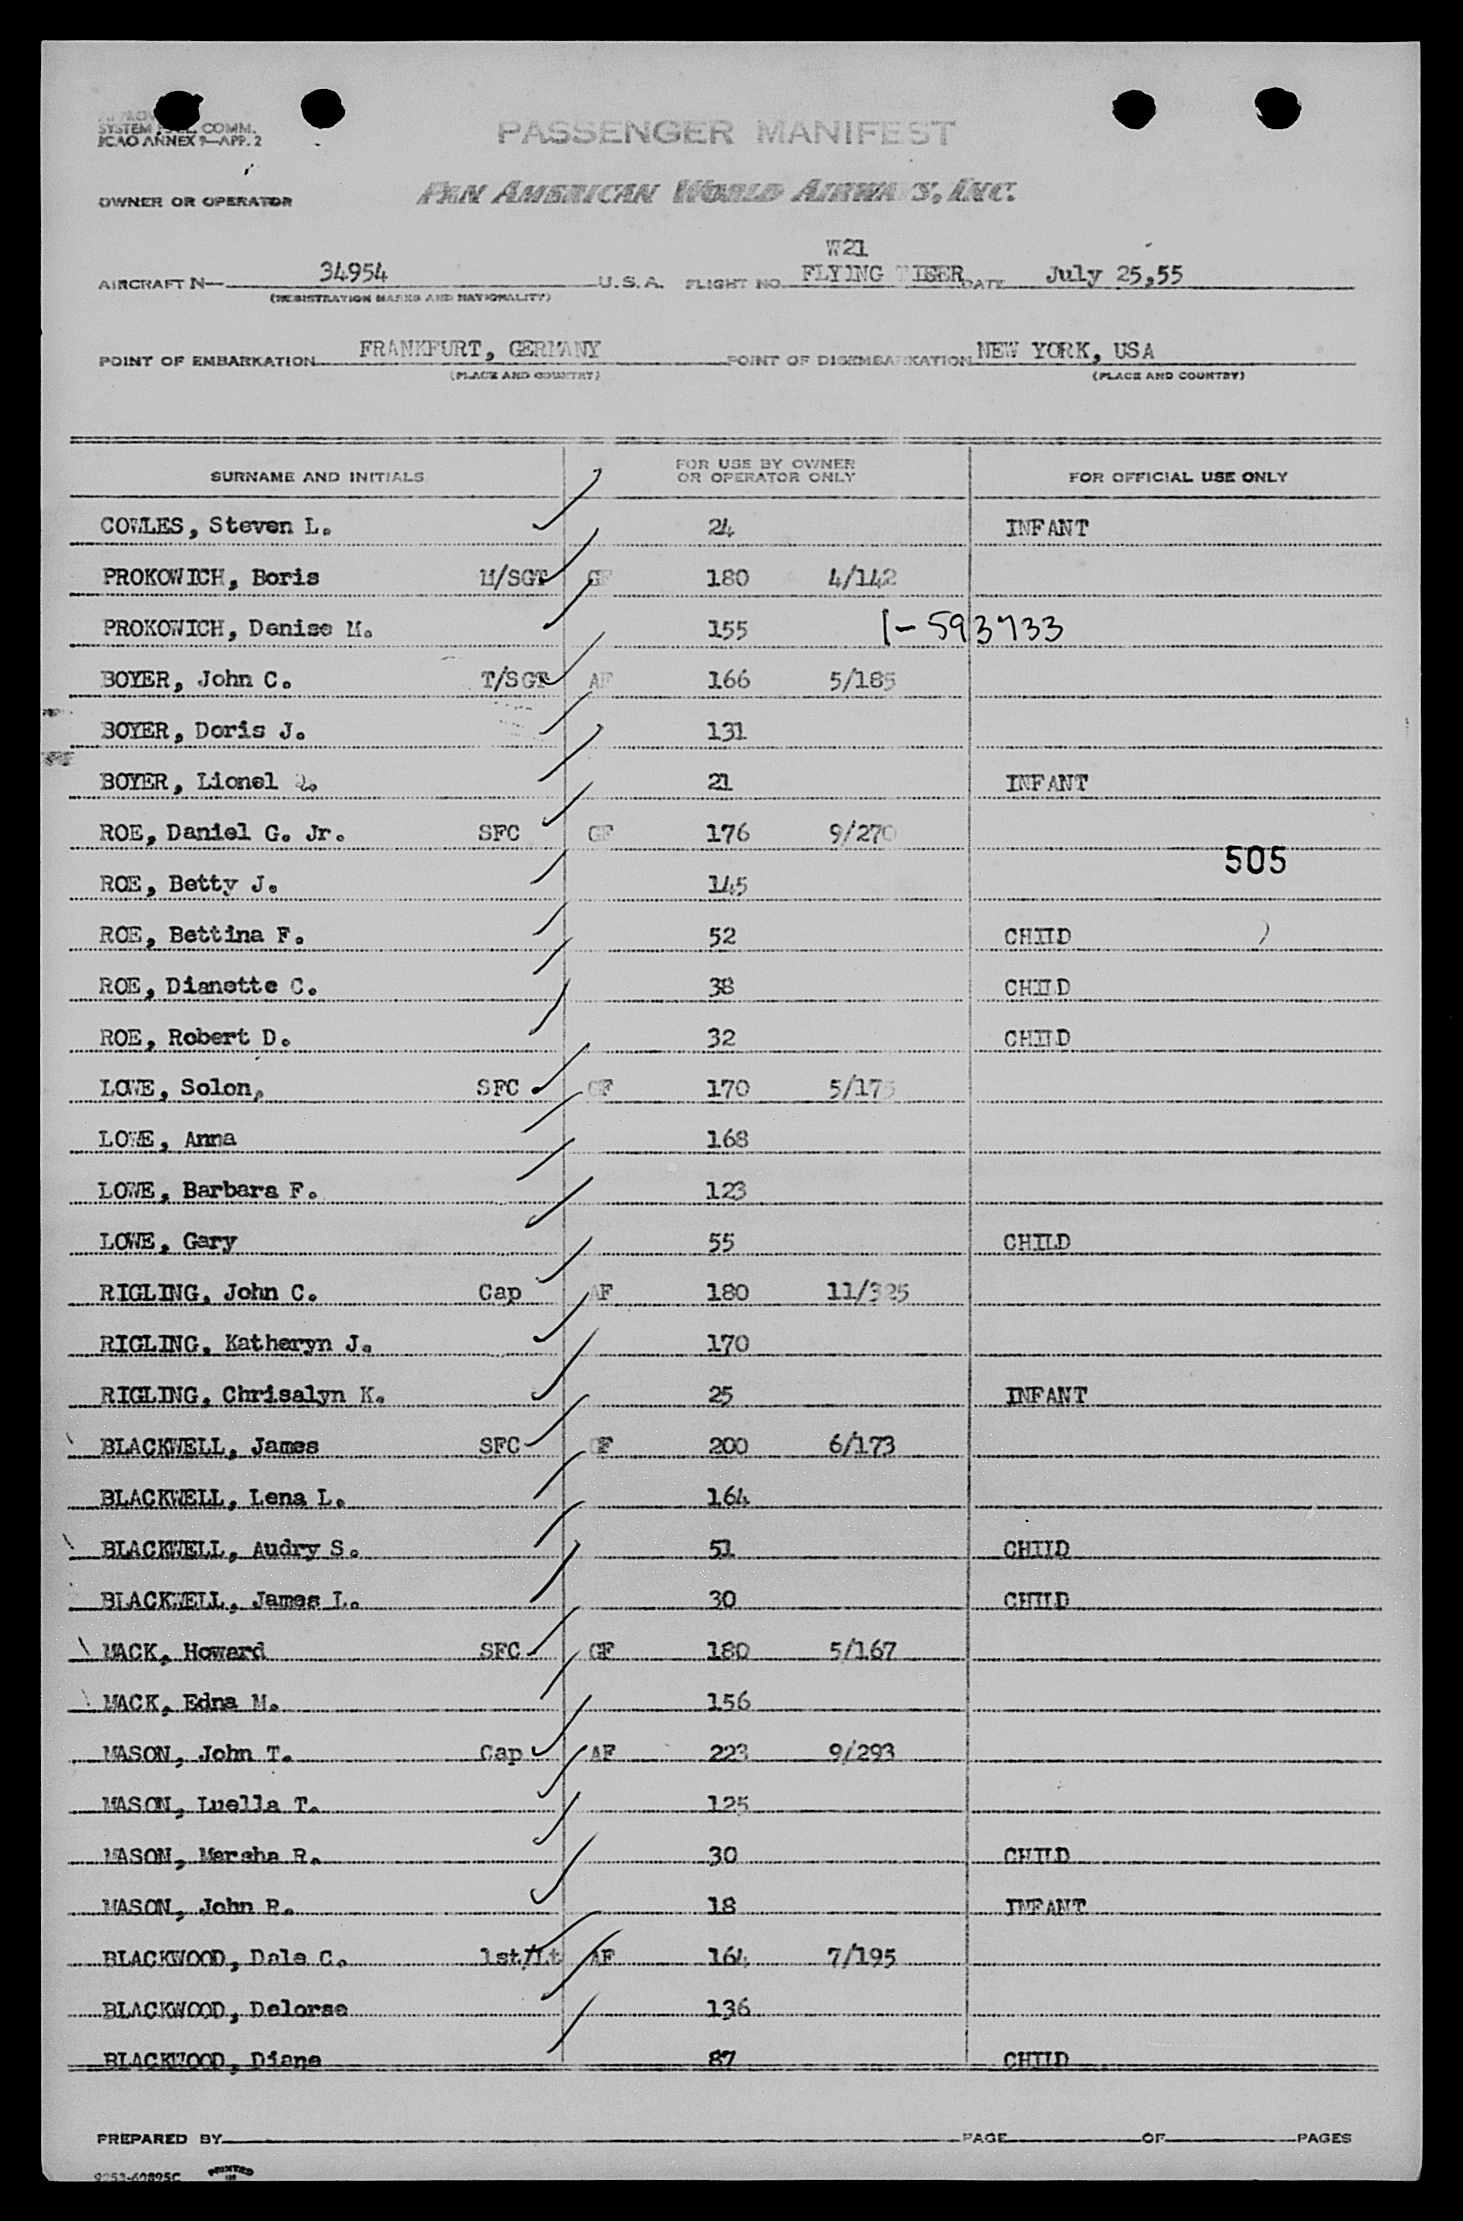 SYSTEM COMM.
ICAO ANNEX 9—APP. 2
PASSENGER MANIFEST
OWNER OR OPERATOR PAN AMERICAN WORLD AIRWAYS, INC.
W21
AIRCRAFT N— 34954 U.S.A. FLIGHT NO. FLYING TIGER DATE July 25,55
(REGISTRATION MARKS AND NATIONALITY)
POINT OF EMBARKATION FRANKFURT, GERMANY POINT OF DISEMBARKATION NEW YORK, USA
(PLACE AND COUNTRY) (PLACE AND COUNTRY)
SURNAME AND INITIALS FOR USE BY OWNER OR OPERATOR ONLY FOR OFFICIAL USE ONLY
COWLES, Steven L. 24 INFANT
PROKOWICH, Boris M/SGT GF 180 4/142
PROKOWICH, Denise M. 155 1-593733
BOYER, John C. T/SGT AF 166 5/185
BOYER, Doris J. 131
BOYER, Lionel 21 INFANT
ROE, Daniel G. Jr. SFC GF 176 9/270
505
ROE, Betty J. 145
ROE, Bettina F. 52 CHILD
ROE, Dianette C. 38 CHILD
ROE, Robert D. 32 CHILD
LOWE, Solon, SFC GF 170 5/175
LOWE, Anna 168
LOWE, Barbara F. 123
LOWE, Gary 55 CHILD
RIGLING, John C. Cap AF 180 11/325
RIGLING, Katheryn J. 170
RIGLING, Chrisalyn K. 25 INFANT
BLACKWELL, James SFC GF 200 6/173
BLACKWELL, Lena L. 164
BLACKWELL, Audry S. 51 CHILD
BLACKWELL, James L. 30 CHILD
MACK, Howard SFC GF 180 5/167
MACK, Edna M. 156
MASON, John T. Cap AF 223 9/293
MASON, Luella T. 125
MASON, Marsha R. 30 CHILD
MASON, John R. 18 INFANT
BLACKWOOD, Dale C. 1st/Lt AF 164 7/195
BLACKWOOD, Delorse 136
BLACKWOOD, Diane 87 CHILD
PREPARED BY PAGE OF PAGES
PRINTED